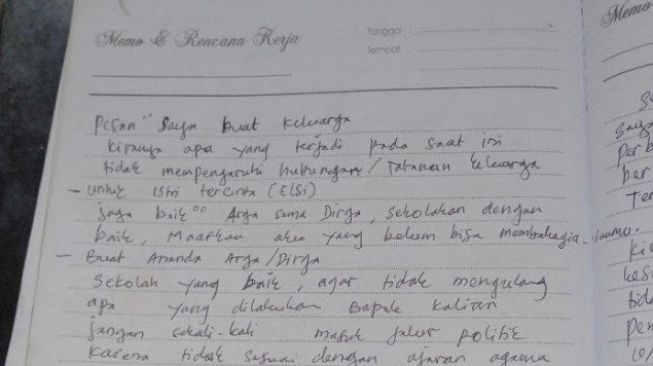 Memo & Rencana Kerja
Tanggal :
Tempat :
Pesan" Saya buat keluarga
Kiranya apa yang terjadi pada saat ini
tidak mempengaruhi hubungan/Tatanan keluarga
- untuk istri tercinta (ELSi)
jaga baik" Arga sama Dirga, sekolahan dengan
baik, Maafkan aku yang belum bisa membahagia-kanmu.
- Buat Ananda Arga/Dirga
Sekolah yang baik, agar tidak mengulang
apa yang dilakukan Bapak kalian
jangan sekali-kali masuk jalur politik
Karena tidak sesuai dengan ajaran agama
Memo